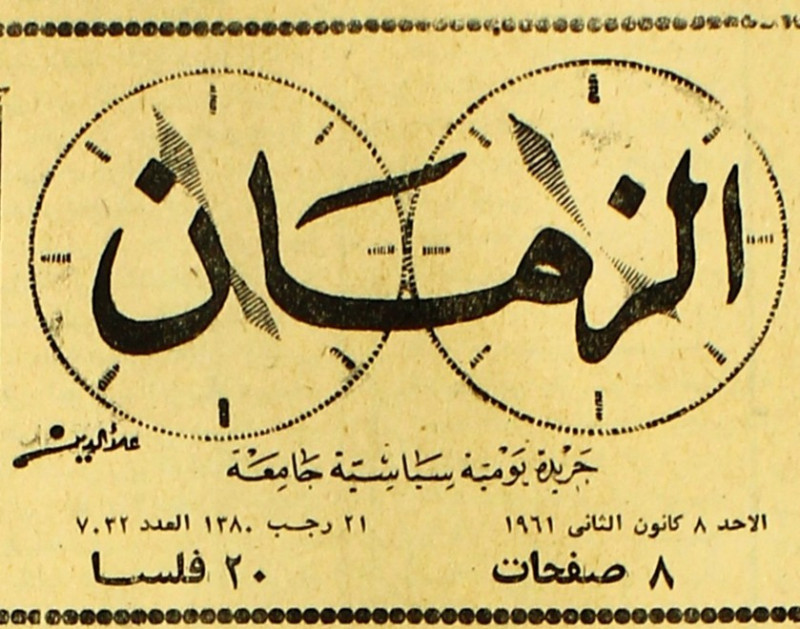 الزمان
علاء الدين
جريدة يومية سياسية جامعة
الاحد ٨ كانون الثانى ١٩٦١
٢١ رجب ١٣٨٠ العدد ٧٠٣٢
٨ صفحات
٢٠ فلسا